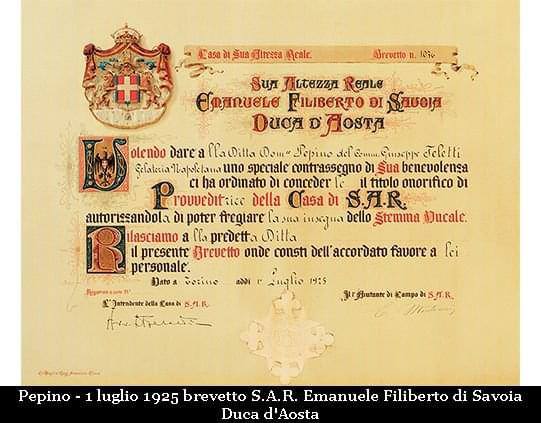 Casa di Sua Altezza Reale. Brevetto n. 1036
Sua Altezza Reale
Emanuele Filiberto di Savoia
Duca d'Aosta
Volendo dare alla Ditta Dom.co Pepino del Comm. Giuseppe Feletti
Gelateria Napoletana uno speciale contrassegno di Sua benevolenza
ci ha ordinato di concederle il titolo onorifico di
Provveditrice della Casa di S.A.R.
autorizzandola di poter fregiare la sua insegna dello Stemma Ducale.
Rilasciamo alla predetta Ditta
il presente Brevetto onde consti dell'accordato favore a lei
personale.
Dato a Torino addì 1° Luglio 1925
L'Intendente della Casa di S.A.R. Il 1° Aiutante di Campo di S.A.R.
Pepino - 1 luglio 1925 brevetto S.A.R. Emanuele Filiberto di Savoia
Duca d'Aosta